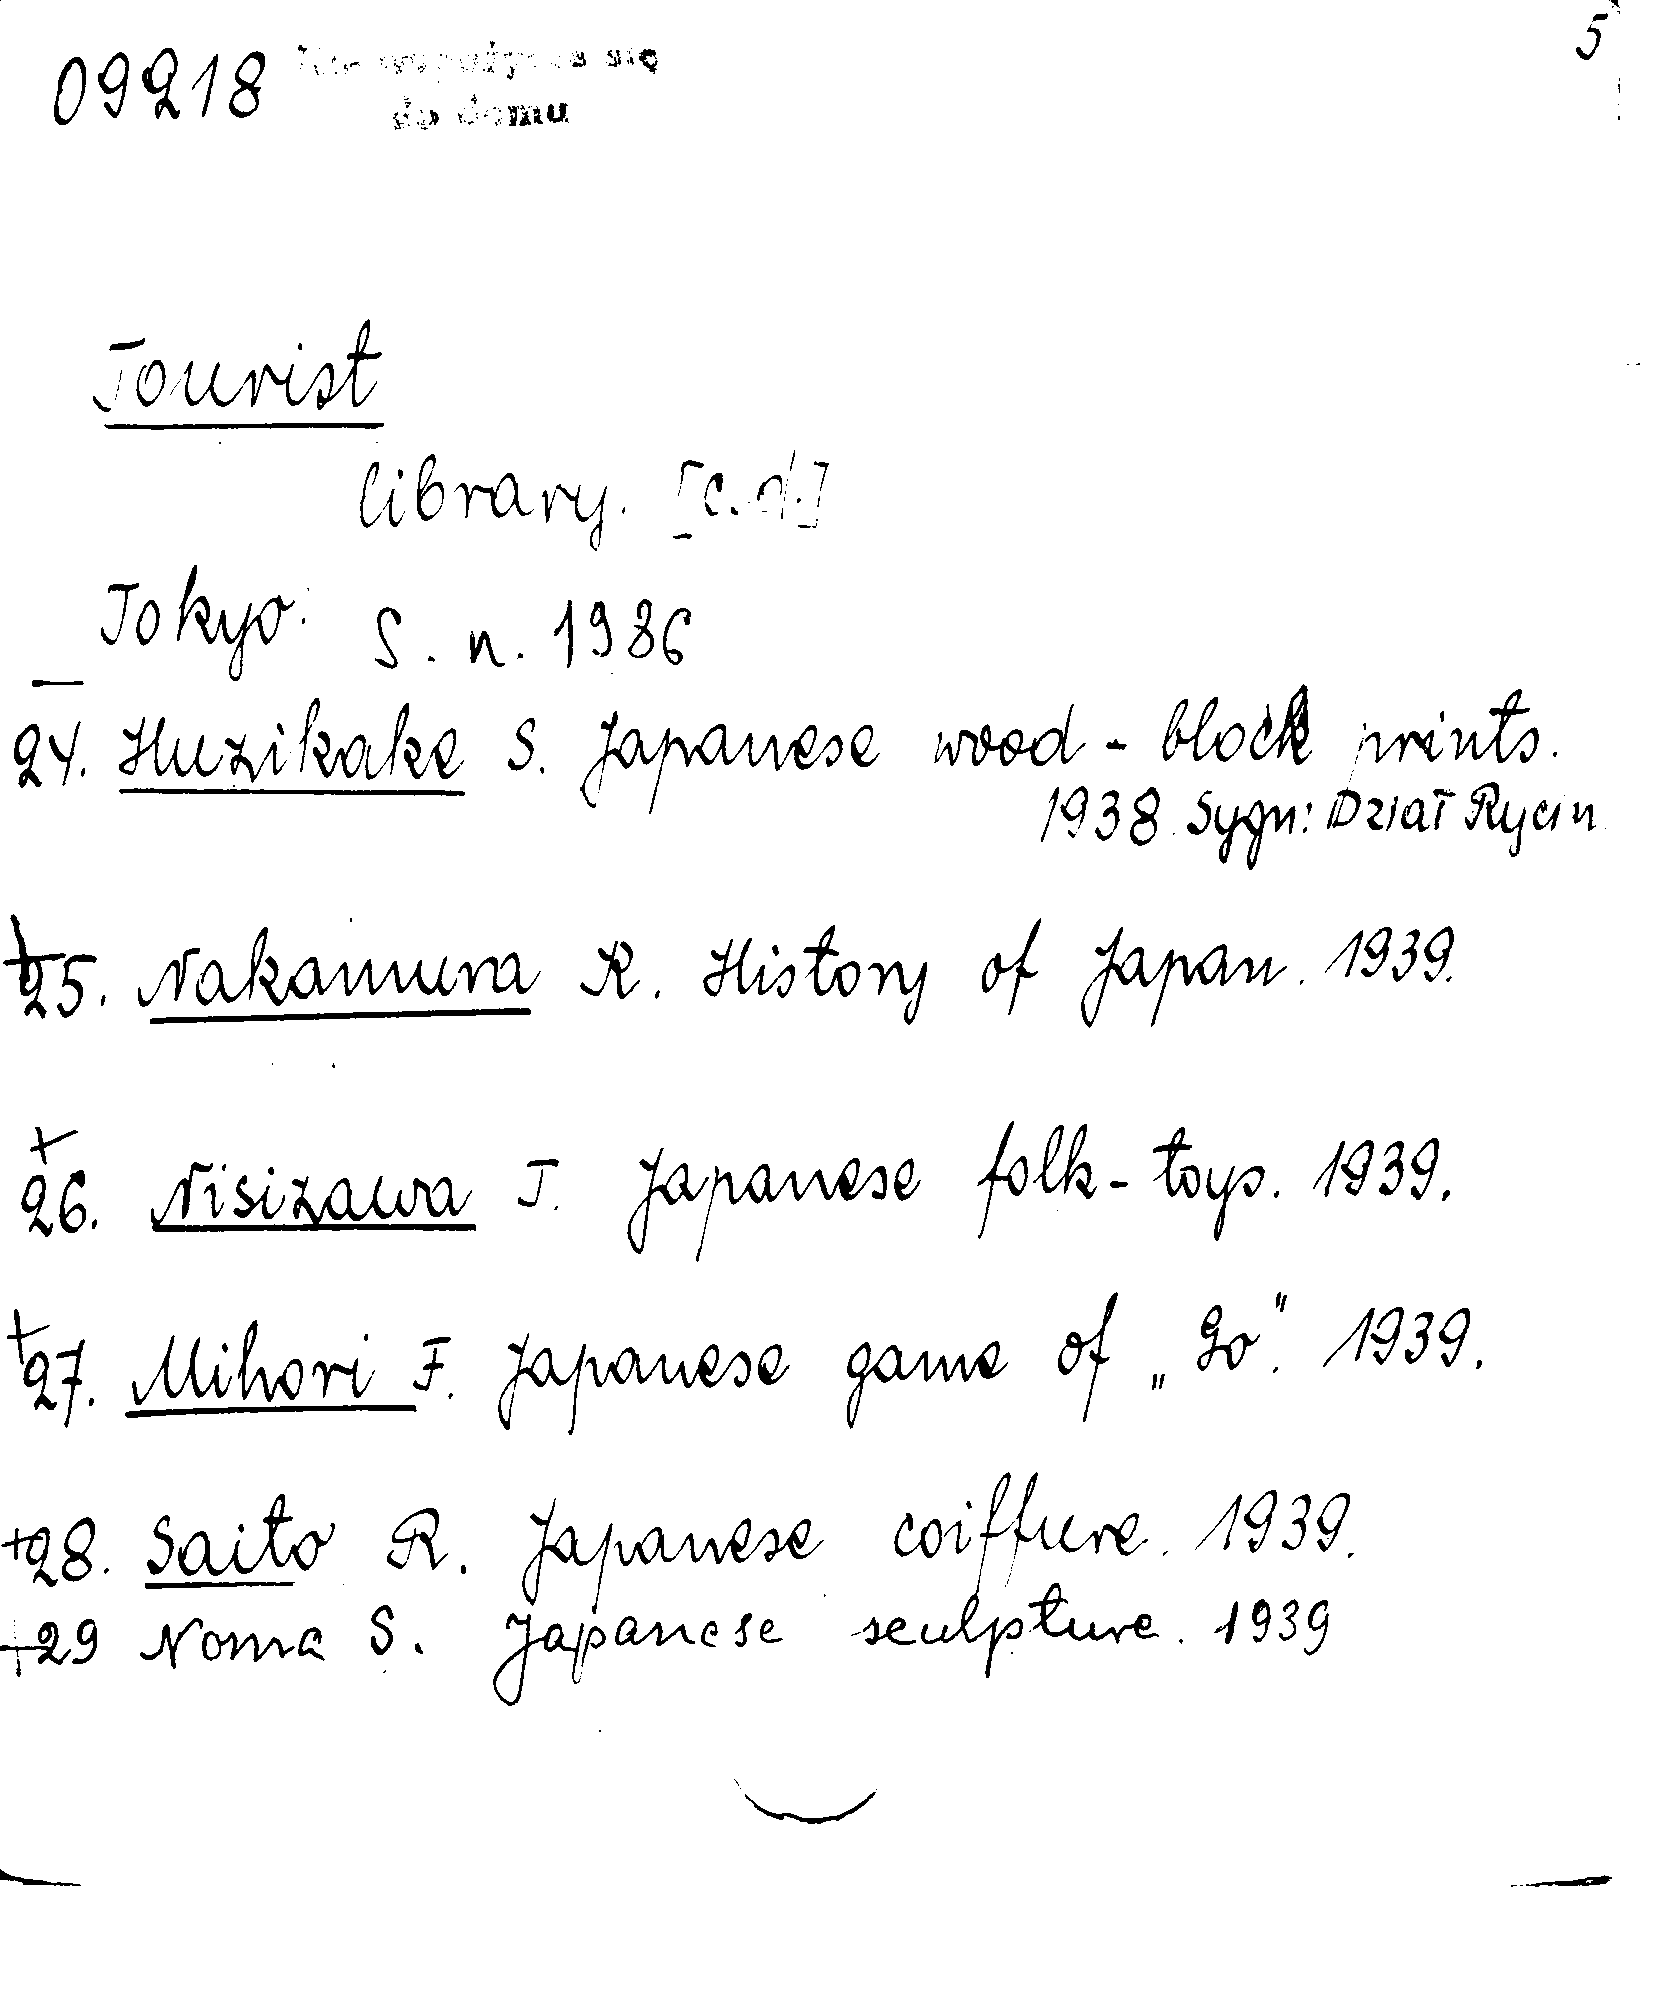 09218 Nie wypożycza się
5
do domu
Tourist
library. [c.d.]
Tokyo: S. n. 1936
24. Huzikake S. Japanese wood-block prints.
1938. Sygn: Dział Rycin
+
25. Nakamura K. History of Japan. 1939.
+
26. Nisizawa T. Japanese folk-toys. 1939.
+
27. Mihori F. Japanese game of „Go". 1939.
+28. Saito R. Japanese coiffure. 1939.
+29 Noma S. Japanese sculpture. 1939